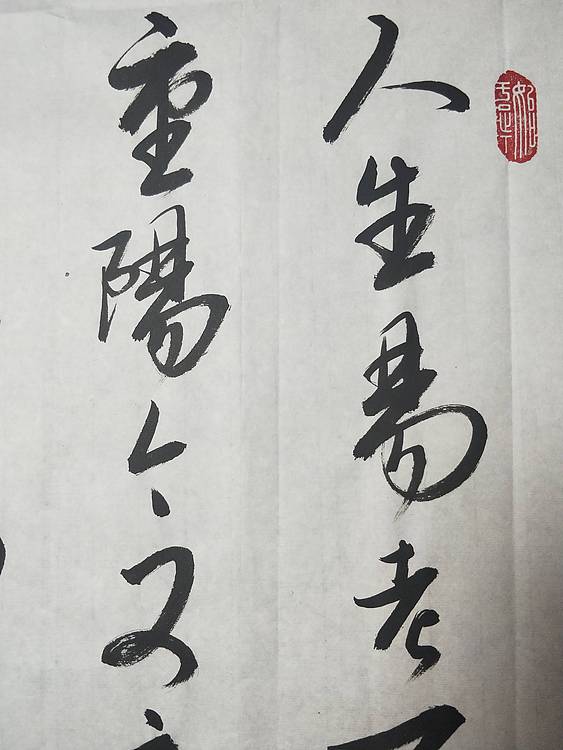 人生易老
重陽今又